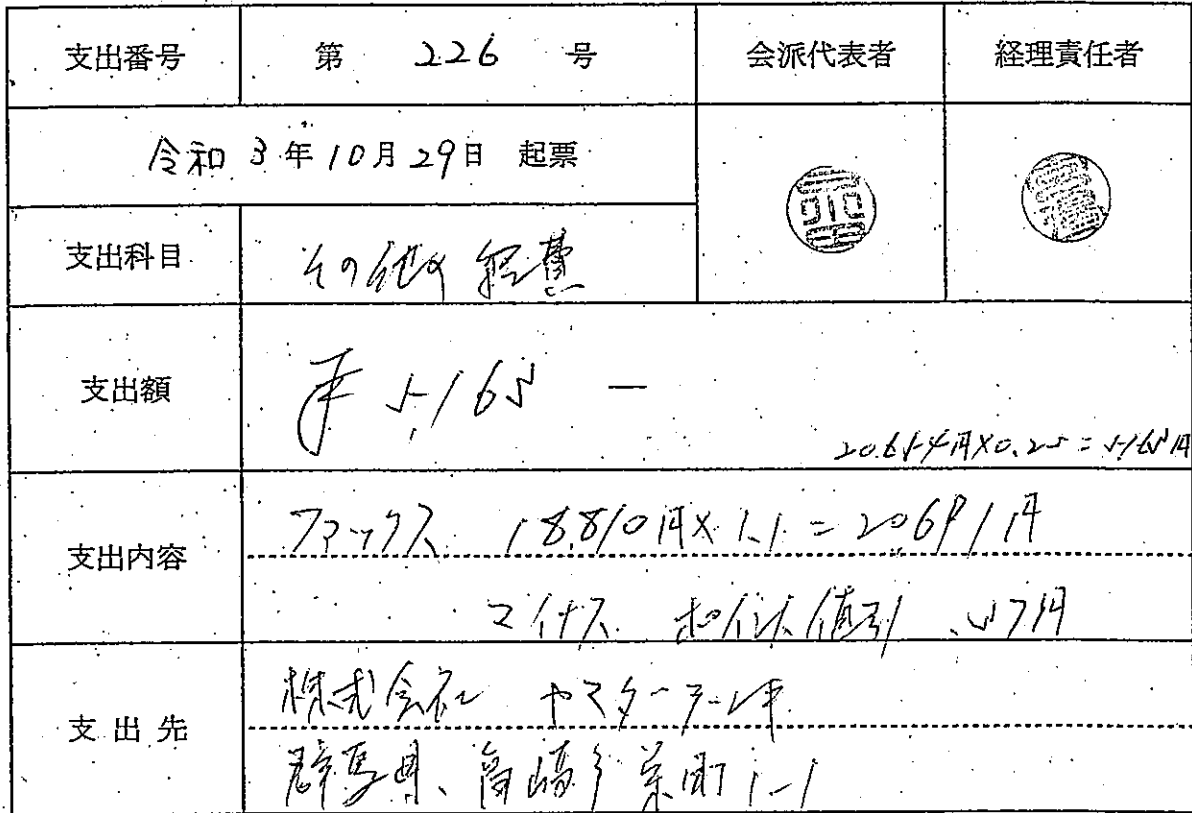 支出番号 第 226 号 会派代表者 経理責任者
令和 3年10月29日 起票
支出科目 その他の経費
支出額 ¥
20,654円×0.25=
支出内容 ファックス 18,810円×1.1=20,691円
マイナス ポイント値引
支出先 株式会社 ヤマダデンキ
群馬県、高崎市栄町1-1